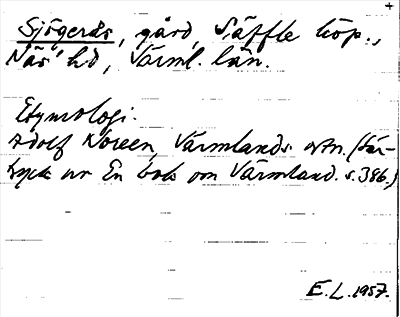 +
Sjögerås, gård, Säffle köp.,
Näs' hd, Värml. län.
Etymologi.
Adolf Noreen, Värmlands ortn. (Sär-
tryck ur En bok om Värmland. s. 386.)
E. L. 1957.